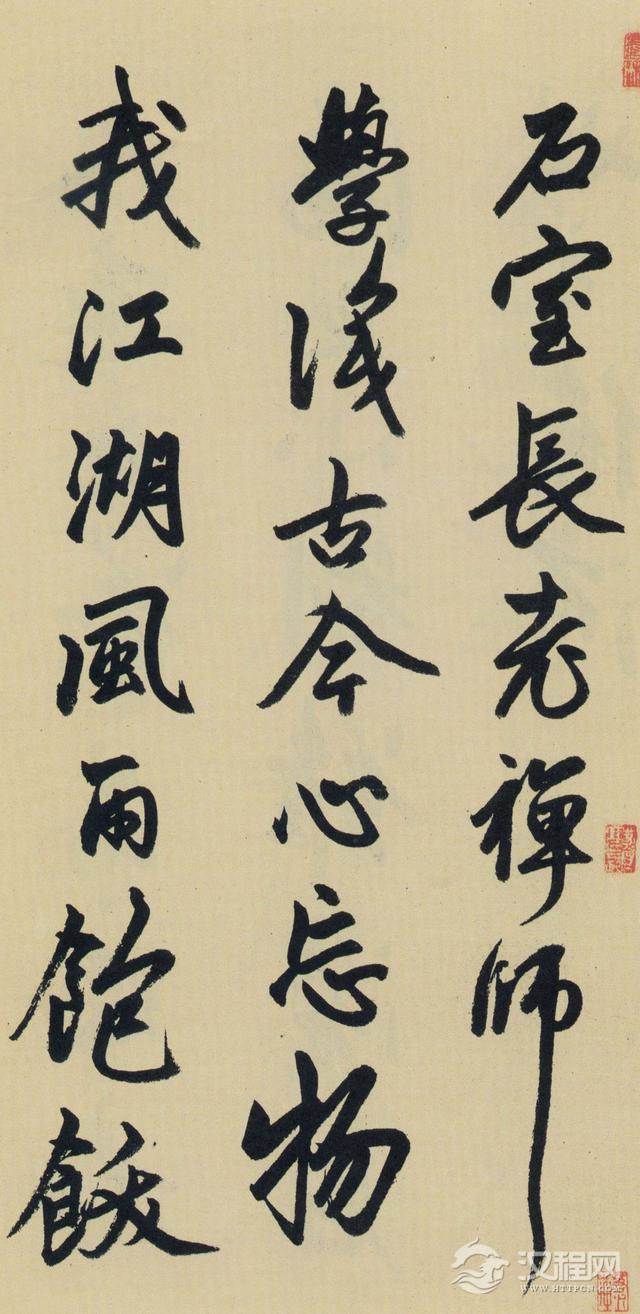 石室長老禪師
學識古今心忘物
我江湖風雨飽飫
汉程网
WWW.HTTPCN.COM